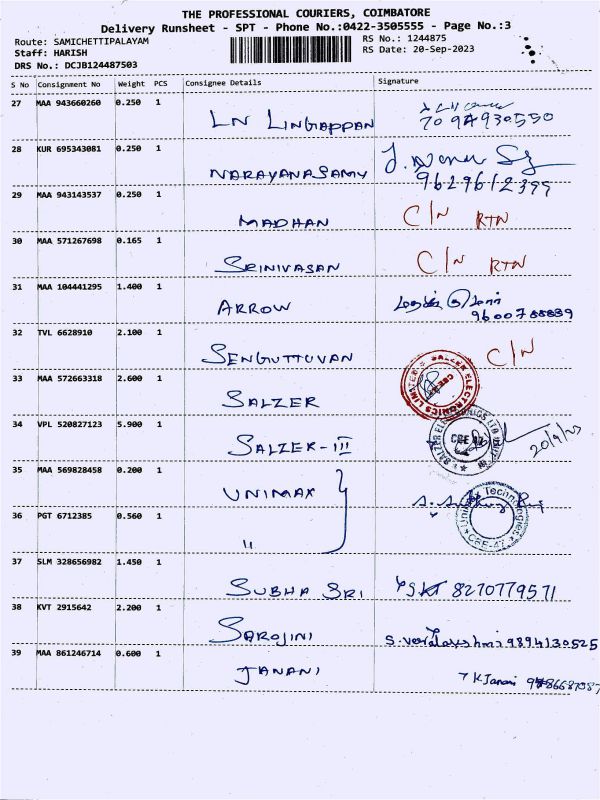 THE PROFESSIONAL COURIERS, COIMBATORE
Delivery Runsheet - SPT - Phone No.:0422-3505555 - Page No.:3
Route: SAMICHETTIPALAYAM RS No.: 1244875
Staff: HARISH RS Date: 20-Sep-2023
DRS No.: DCJB124487503
S No Consignment No Weight PCS Consignee Details Signature
27 MAA 943660260 0.250 1 LN LINGAPPAN
28 KUR 695343081 0.250 1 NARAYANASAMY
9629612399
29 MAA 943143537 0.250 1 MADHAN C/N RTN
30 MAA 571267698 0.165 1 SRINIVASAN C/N RTN
31 MAA 104441295 1.400 1 ARROW
32 TVL 6628910 2.100 1 SENGUTTUVAN C/N
33 MAA 572663318 2.600 1 SALZER SALZER ELECTRONICS LIMITED
34 VPL 520827123 5.900 1 SALZER-III SALZER ELECTRONICS LTD 20/9/23
35 MAA 569828458 0.200 1 UNIMAX
36 PGT 6712385 0.560 1 " Technologies CBE-47
37 SLM 328656982 1.450 1 SUBHA SRI 8270779571
38 KVT 2915642 2.200 1 SAROJINI S. Varalakshmi 9894130525
39 MAA 861246714 0.600 1 JANANI K Janani